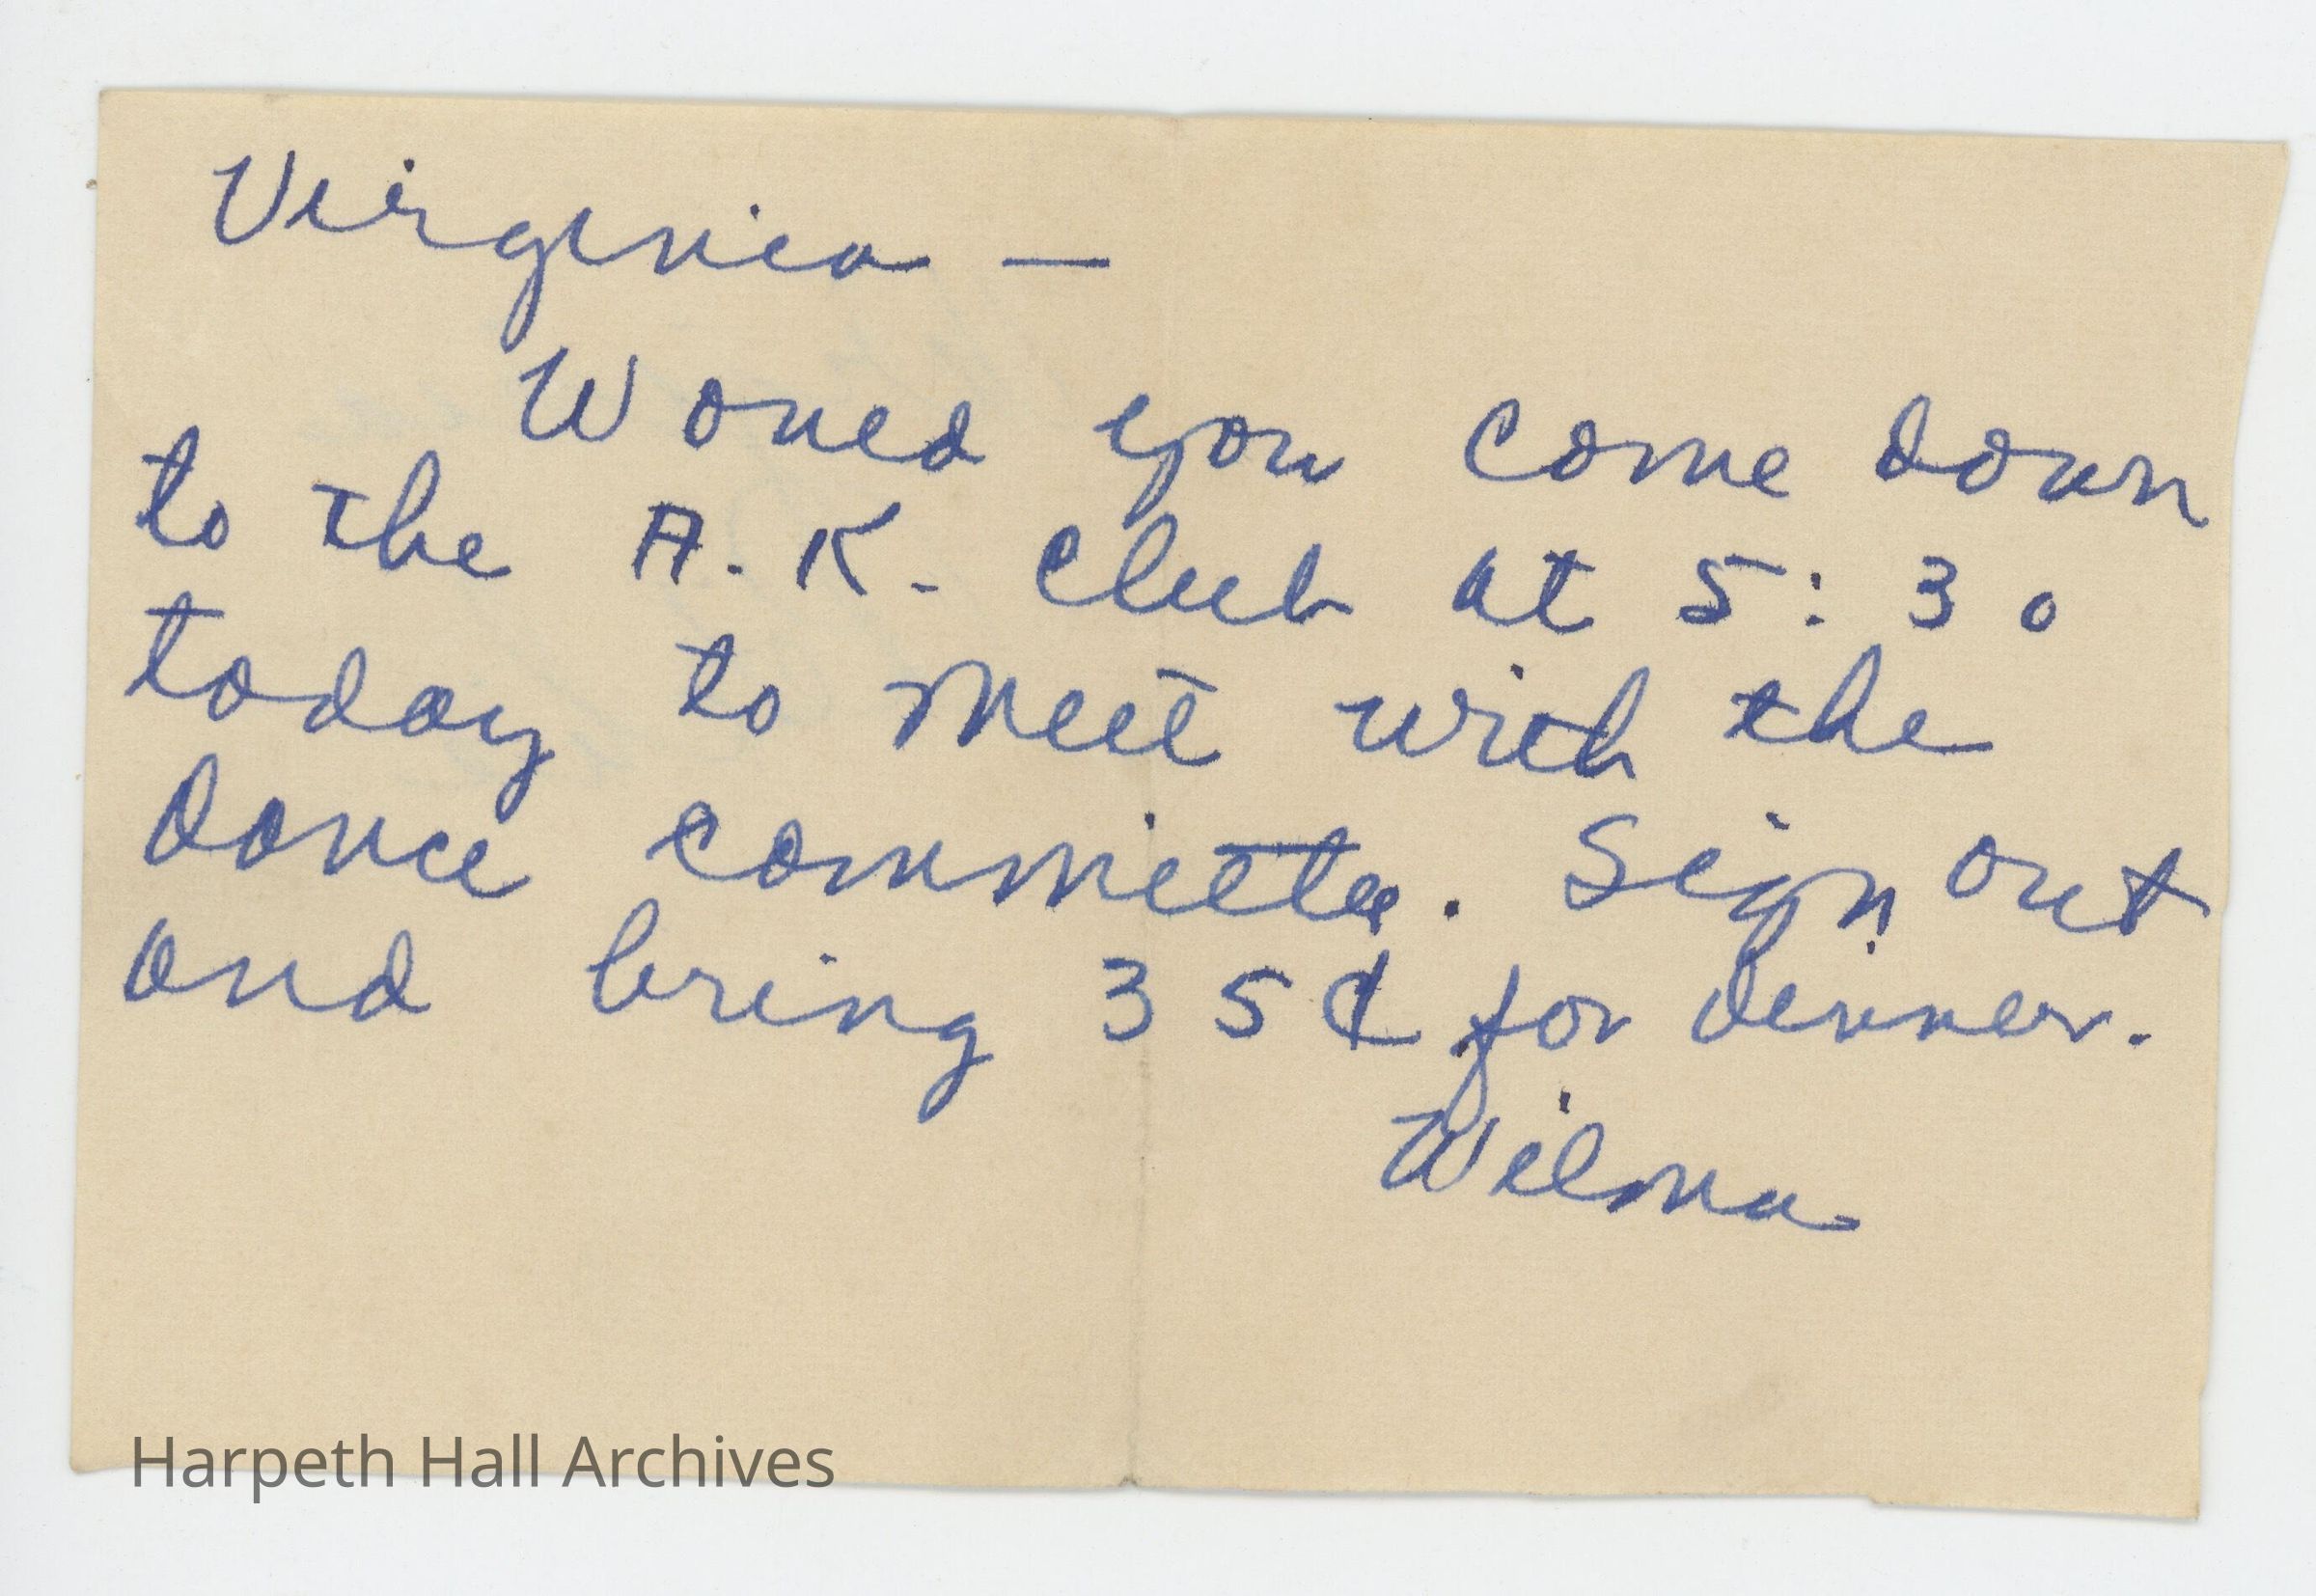 Virginia —
Would you come down
to the A.K. Club at 5:30
today to meet with the
dance committee. Sign out
and bring 35¢ for dinner.
Wilma
Harpeth Hall Archives